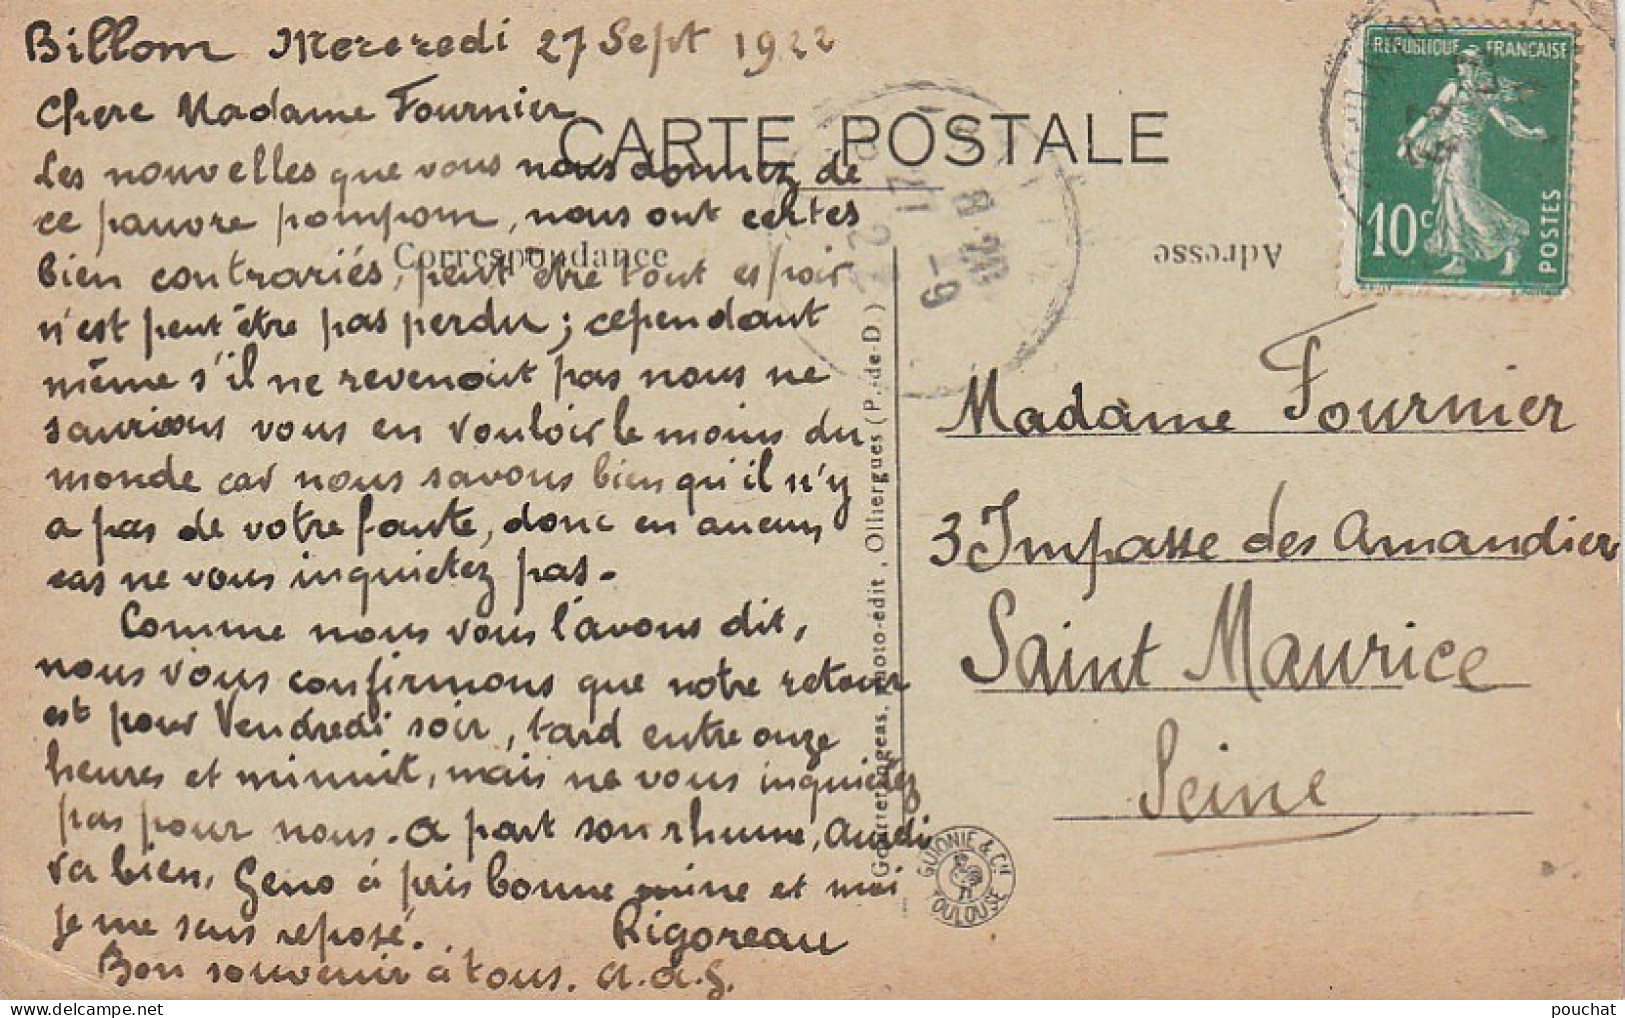 Billom Mercredi 27 Sept 1922
Chere Madame Fournier
Les nouvelles que vous nous donniez de
ce pauvre pompom, nous ont certes
bien contrariés, peut être tout espoir
n'est peut être pas perdu; cependant
même s'il ne revenait pas nous ne
saurions vous en vouloir le moins du
monde car nous savons bien qu'il n'y
a pas de votre faute, donc en aucun
cas ne vous inquietez pas.
Comme nous vous l'avons dit,
nous vous confirmons que notre retour
est pour Vendredi soir, tard entre onze
heures et minuit, mais ne vous inquietez
pas pour nous. A part son rhume, Audi
va bien, Geno à pris bonne mine et moi
je me sens reposé. Rigoreau
Bon souvenir à tous. A.A.G.
CARTE POSTALE
Correspondance
Adresse
Gouttefangeas, photo-édit, Olliergues (P.-de-D.)
GUIONIE & Cie
TOULOUSE
REPUBLIQUE FRANÇAISE
10c
POSTES
Madame Fournier
3 Impasse des Amandiers
Saint Maurice
Seine
pouchat